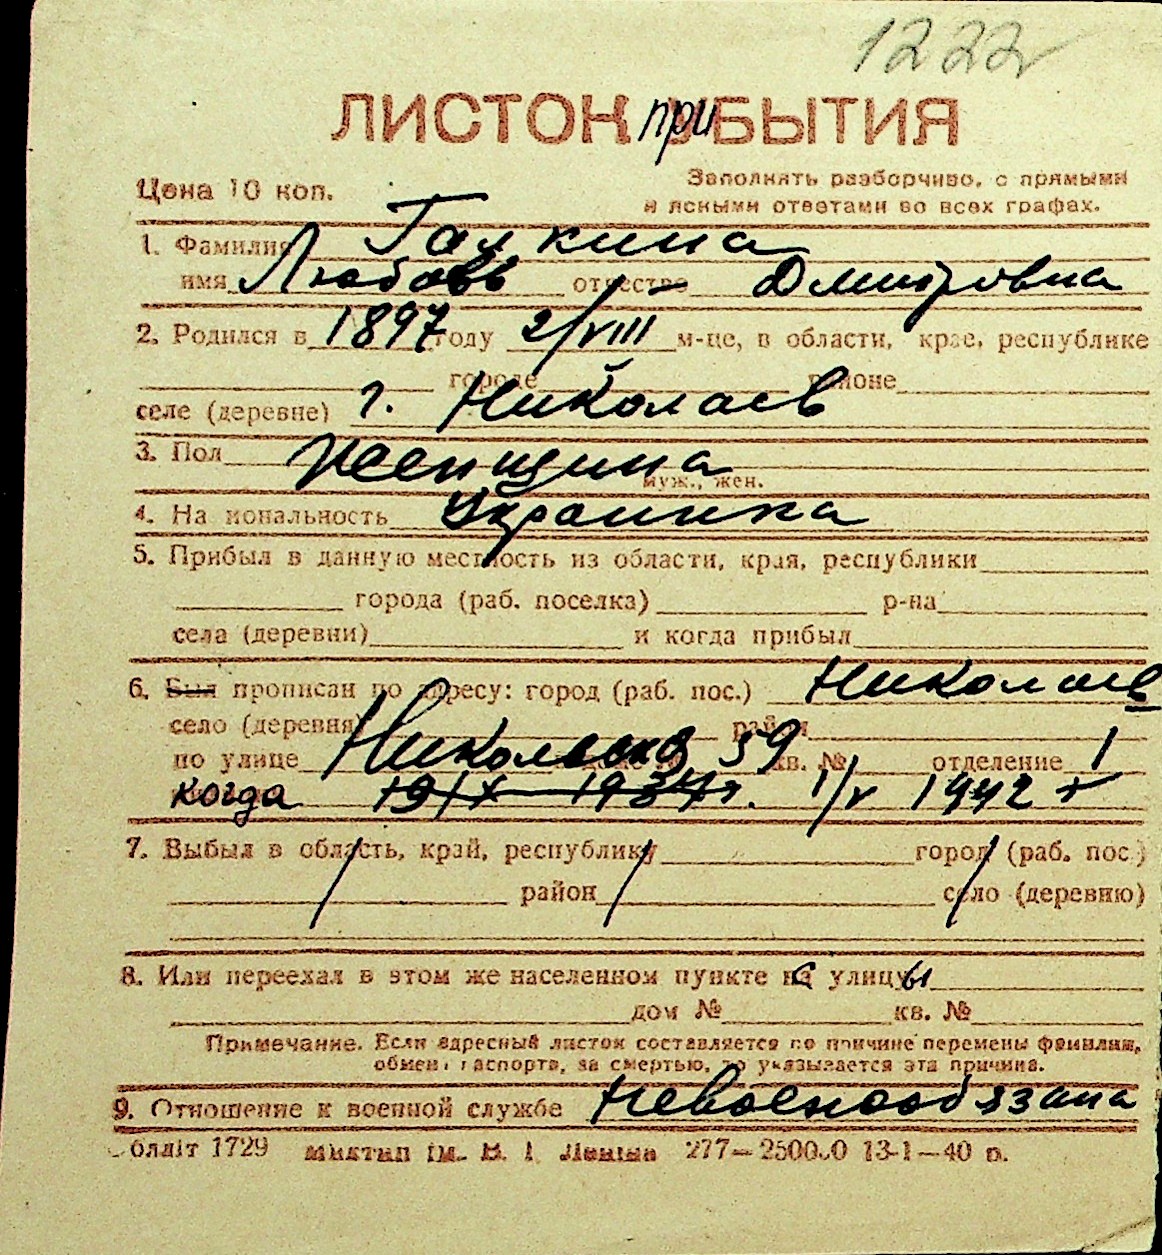 1222
ЛИСТОК при БЫТИЯ
Цена 10 коп.
Заполнять разборчиво, с прямыми
и ясными ответами во всех графах.
1. Фамилия Галкина
имя Любовь отчество Дмитровна
2. Родился в 1897 году 2/VIII м-це, в области, крае, республике
городе районе
селе (деревне) г. Николаев
3. Пол Женщина
муж., жен.
4. На иональность Украинка
5. Прибыл в данную местность из области, края, республики
города (раб. поселка) р-на
села (деревни) и когда прибыл
6. Был прописан по адресу: город (раб. пос.) Николаев
село (деревня) район
по улице Никольско 59 кв. № отделение 1
когда 19/IX 1937г. 1/V 1942 г
7. Выбыл в область, край, республику город (раб. пос.)
район село (деревню)
8. Или переехал в этом же населенном пункте с улицы
дом № кв. №
Примечание. Если адресный листок составляется по причине перемены фамилии,
обмена паспорта, за смертью, то указывается эта причина.
9. Отношение к военной службе невоеннообязана
облліт 1729 Миктип ім. В. І Леніна 277—250000 13-1—40 р.